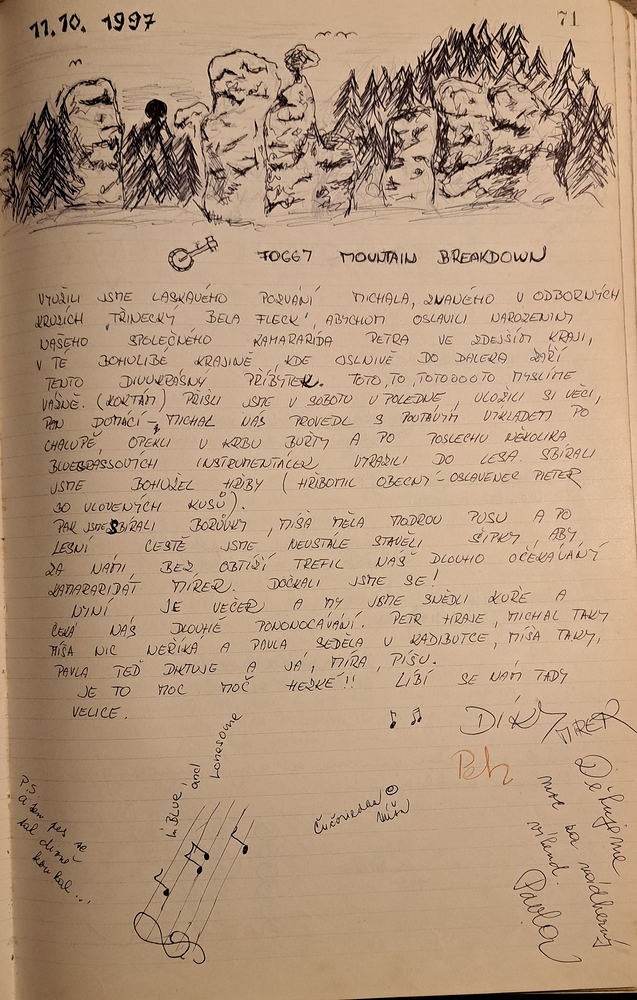 11.10.1997
71
FOGGY MOUNTAIN BREAKDOWN
VYUŽILI JSME LASKAVÉHO POZVÁNÍ MICHALA, ZNANÉHO V ODBORNÝCH
KRUZÍCH „TŘINECKÝ BELA FLECK", ABYCHOM OSLAVILI NAROZENINY
NAŠEHO SPOLEČNÉHO KAMARÁDA PETRA VE ZDEJŠÍM KRAJI,
V TÉ BOHULIBÉ KRAJINĚ, KDE OSLNIVĚ DO DALEKA ZÁŘÍ
TENTO DIVUKRÁSNÝ PŘÍBYTEK. TOTO, TO, TOTOOOOTO MYSLÍME
VÁŽNĚ. (KOKTÁM) PŘIŠLI JSME V SOBOTU V POLEDNE, ULOŽILI SI VĚCI,
PAN DOMÁCÍ - MICHAL NÁS PROVEDL S POUTAVÝM VÝKLADEM PO
CHALUPĚ, OPEKLI V KRBU BUŘTY A PO POSLECHU NĚKOLIKA
BLUEGRASSOVÝCH INSTRUMENTÁLEK VYRAZILI DO LESA. SBÍRALI
JSME BOHUŽEL HŘIBY (HŘIBOMIL OBECNÝ - OSLAVENEC PIETER
30 ULOVENÝCH KUSŮ).
PAK JSME SBÍRALI BORŮVKY, MÍŠA MĚLA MODROU PUSU A PO
LESNÍ CESTĚ JSME NEUSTÁLE STAVĚLI ŠIPKY, ABY
ZA NÁMI BEZ OBTÍŽÍ TREFIL NÁŠ DLOUHO OČEKÁVANÝ
KAMARÁD MÍREK. DOČKALI JSME SE!
NYNÍ JE VEČER A MY JSME SNĚDLI KUŘE A
ČEKÁ NÁS DLOUHÉ PONOCOVÁNÍ. PETR HRAJE, MICHAL TAKY
MÍŠA NIC NEŘÍKÁ A PAVLA SEDĚLA V KADIBUTCE, MÍŠA TAKY,
PAVLA TEĎ DIKTUJE A JÁ, MÍRA, PÍŠU.
JE TO MOC MOC HEZKÉ!! LÍBÍ SE NÁM TADY
VELICE.
DÍKY MIREK
Petr
in Blue, and Lonesome
Míša
Děkujeme
moc za nádherný
víkend.
Pavla
P.S.
a ten pes se
tak divně
koukal...